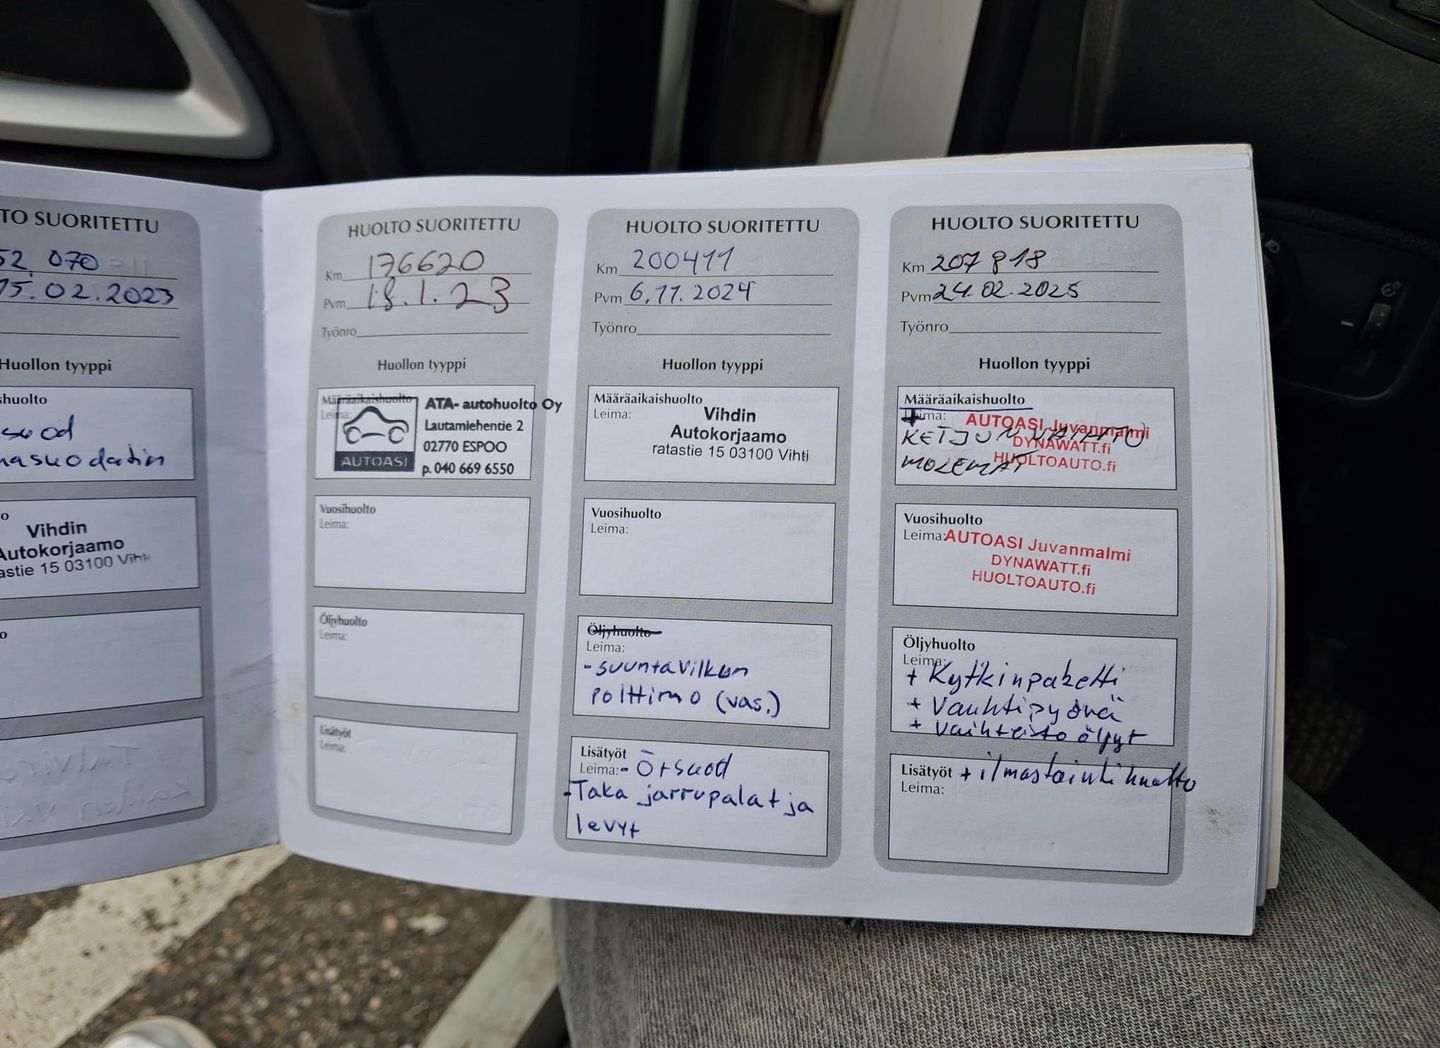 TO SUORITETTU
52.070
15.02.2023
Huollon tyyppi
shuolto
Vihdin
Autokorjaamo
ratastie 15 03100 Vihti
HUOLTO SUORITETTU
Km 176620
Pvm 18.1.23
Työnro
Huollon tyyppi
Määräaikaishuolto
Leima:
AUTOASI
ATA- autohuolto Oy
Lautamiehentie 2
02770 ESPOO
p. 040 669 6550
Vuosihuolto
Leima:
Öljyhuolto
Leima:
Lisätyöt
Leima:
HUOLTO SUORITETTU
Km 200411
Pvm 6.11.2024
Työnro
Huollon tyyppi
Määräaikaishuolto
Leima:
Vihdin
Autokorjaamo
ratastie 15 03100 Vihti
Vuosihuolto
Leima:
Öljyhuolto
Leima:
-suuntavilkun
polttimo (vas.)
Lisätyöt
Leima: - Örsuod
-Taka jarrupalat ja
levyt
HUOLTO SUORITETTU
Km 207818
Pvm 24.02.2025
Työnro
Huollon tyyppi
Määräaikaishuolto
Leima:
AUTOASI Juvanmalmi
DYNAWATT.fi
HUOLTOAUTO.fi
+ KETJUN VAIHTO
MOLEMAT
Vuosihuolto
Leima:
AUTOASI Juvanmalmi
DYNAWATT.fi
HUOLTOAUTO.fi
Öljyhuolto
Leima:
+ Kytkinpaketti
+ Vauhtipyörä
+ vaihteisto öljyt
Lisätyöt + ilmastointihuolto
Leima: